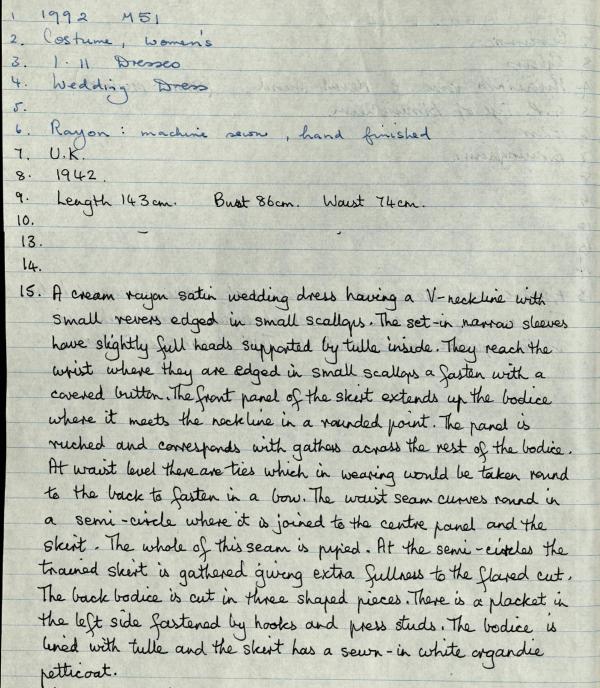 1 1992 M51
2. Costume, Women's
3. 1.11 Dresses
4. Wedding Dress
5.
6. Rayon : machine sewn, hand finished
7. U.K.
8. 1942.
9. Length 143cm. Bust 86cm. Waist 74cm.
10.
13.
14.
15. A cream rayon satin wedding dress having a V-neckline with
small revers edged in small scallops. The set-in narrow sleeves
have slightly full heads supported by tulle inside. They reach the
wrist where they are edged in small scallops & fasten with a
covered button. The front panel of the skirt extends up the bodice
where it meets the neckline in a rounded point. The panel is
ruched and corresponds with gathers across the rest of the bodice.
At waist level there are ties which in wearing would be taken round
to the back to fasten in a bow. The waist seam curves round in
a semi-circle where it is joined to the centre panel and the
skirt. The whole of this seam is piped. At the semi-circles the
trained skirt is gathered giving extra fullness to the flared cut.
The back bodice is cut in three shaped pieces. There is a placket in
the left side fastened by hooks and press studs. The bodice is
lined with tulle and the skirt has a sewn-in white organdie
petticoat.